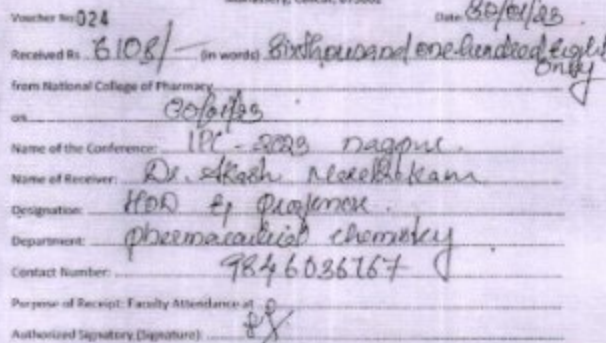 Voucher No 024 Date: 30/01/23
Received Rs 6108/- (in words) Sixthousand one hundred eight
only
from National College of Pharmacy
on 30/01/23
Name of the Conference: IPC - 2023 Nagpur.
Name of Receiver: Dr. Akash
Designation: HOD & Professor.
Department: pharmaceutical chemistry
Contact Number: 9846036767
Purpose of Receipt: Faculty Attendance at
Authorized Signatory (Signature):